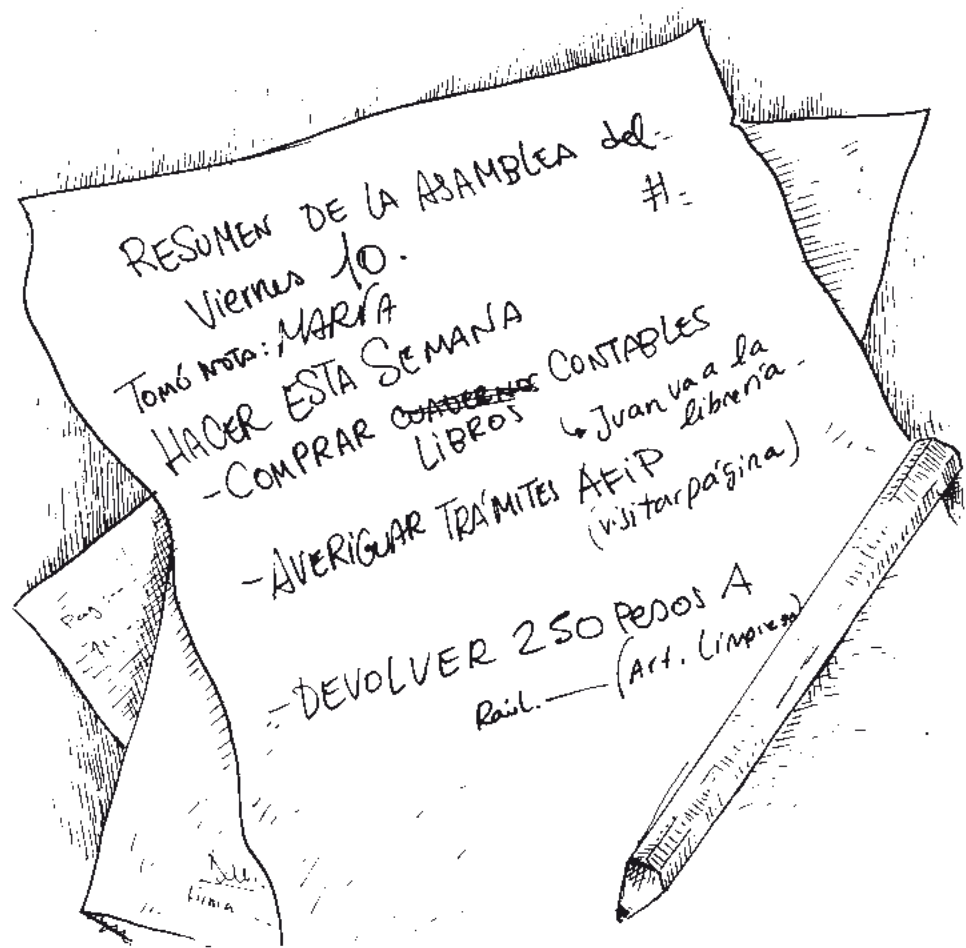 RESUMEN DE LA ASAMBLEA del-
#-
Viernes 10.
TOMÓ NOTA: MARÍA
HACER ESTA SEMANA
- COMPRAR CUADERNOS CONTABLES
LIBROS ↳ Juan va a la
librería -
- AVERIGUAR TRÁMITES AFIP
(visitar página)
- DEVOLVER 250 PESOS A
Raúl. — (Art. Limpieza)
firma